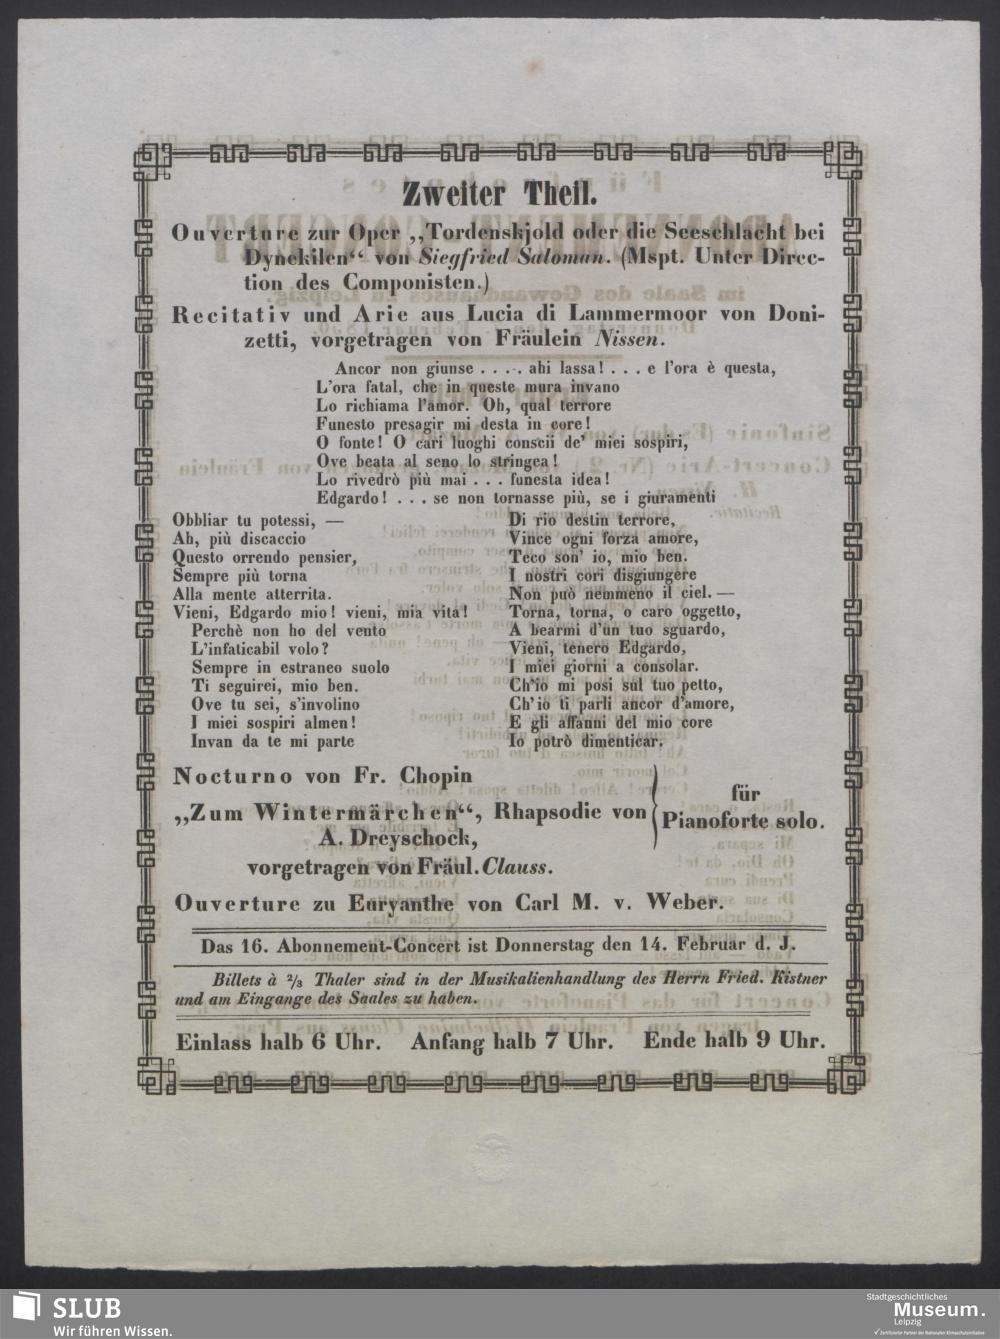 Zweiter Theil.
Ouverture zur Oper „Tordenskjold oder die Seeschlacht bei
Dynekilen“ von Siegfried Saloman. (Mspt. Unter Direc-
tion des Componisten.)
Recitativ und Arie aus Lucia di Lammermoor von Doni-
zetti, vorgetragen von Fräulein Nissen.
Ancor non giunse . . . . ahi lassa! . . . e l'ora è questa,
L'ora fatal, che in queste mura invano
Lo richiama l'amor. Oh, qual terrore
Funesto presagir mi desta in core!
O fonte! O cari luoghi conscii de' miei sospiri,
Ove beata al seno lo stringea!
Lo rivedrò più mai . . . funesta idea!
Edgardo! . . . se non tornasse più, se i giuramenti
Obbliar tu potessi, —
Ah, più discaccio
Questo orrendo pensier,
Sempre più torna
Alla mente atterrita.
Vieni, Edgardo mio! vieni, mia vita!
Perchè non ho del vento
L'infaticabil volo?
Sempre in estraneo suolo
Ti seguirei, mio ben.
Ove tu sei, s'involino
I miei sospiri almen!
Invan da te mi parte
Di rio destin terrore,
Vince ogni forza amore,
Teco son' io, mio ben.
I nostri cori disgiungere
Non può nemmeno il ciel. —
Torna, torna, o caro oggetto,
A bearmi d'un tuo sguardo,
Vieni, tenero Edgardo,
I miei giorni a consolar.
Ch'io mi posi sul tuo petto,
Ch'io ti parli ancor d'amore,
E gli affanni del mio core
Io potrò dimenticar.
Nocturno von Fr. Chopin
„Zum Wintermärchen“, Rhapsodie von
A. Dreyschock,
für
Pianoforte solo.
vorgetragen von Fräul. Clauss.
Ouverture zu Euryanthe von Carl M. v. Weber.
Das 16. Abonnement-Concert ist Donnerstag den 14. Februar d. J.
Billets à 2/3 Thaler sind in der Musikalienhandlung des Herrn Fried. Kistner
und am Eingange des Saales zu haben.
Einlass halb 6 Uhr. Anfang halb 7 Uhr. Ende halb 9 Uhr.
SLUB
Wir führen Wissen.
Stadtgeschichtliches
Museum.
Leipzig
Zertifizierter Partner der Nationalen Klimaschutzinitiative